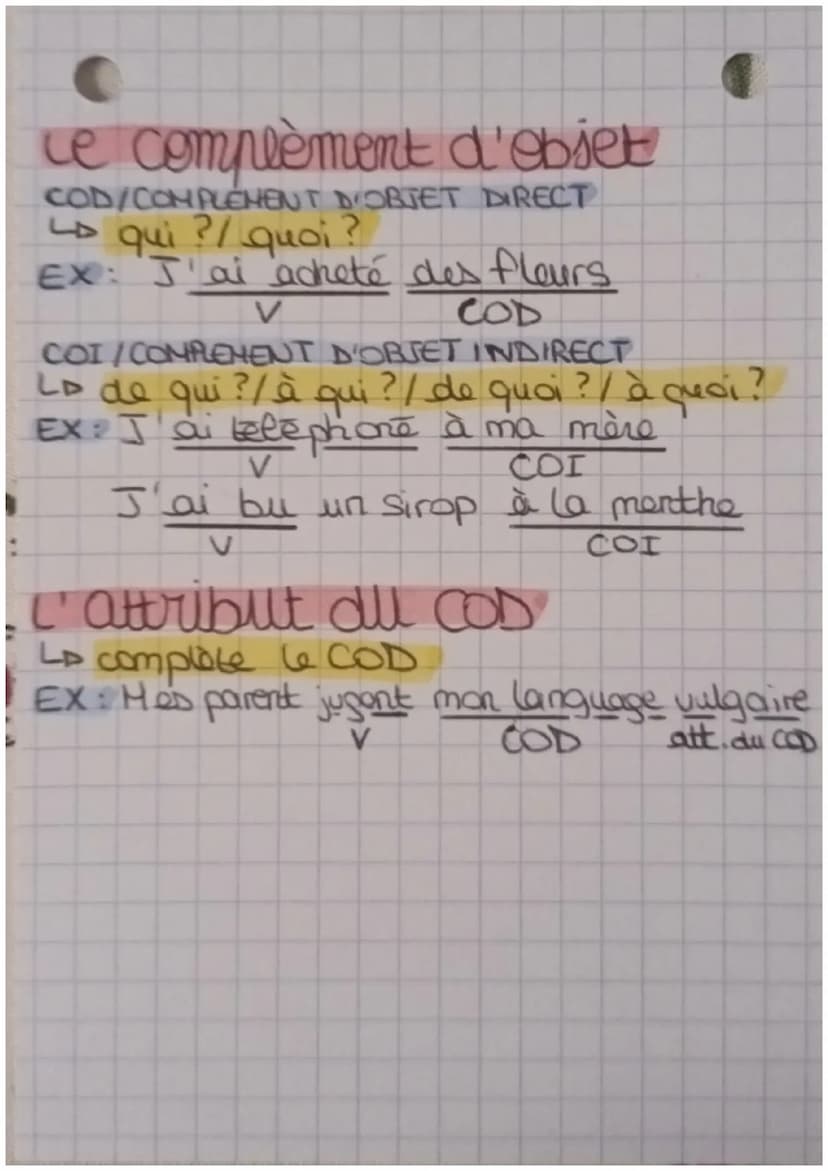 Le complèment d'objet
COD/COMPLÉMENT D'OBJET DIRECT
↳ qui ?/ quoi ?
EX : J'ai acheté des fleurs
V COD
COI/COMPLÉMENT D'OBJET INDIRECT
↳ de qui ?/ à qui ?/ de quoi ?/ à quoi ?
EX : J'ai telephoné à ma mère
V COI
J'ai bu un sirop à la menthe
V COI
L'attribut du COD
↳ complète le COD
EX : Mes parent jugent mon language vulgaire
V COD att. du COD